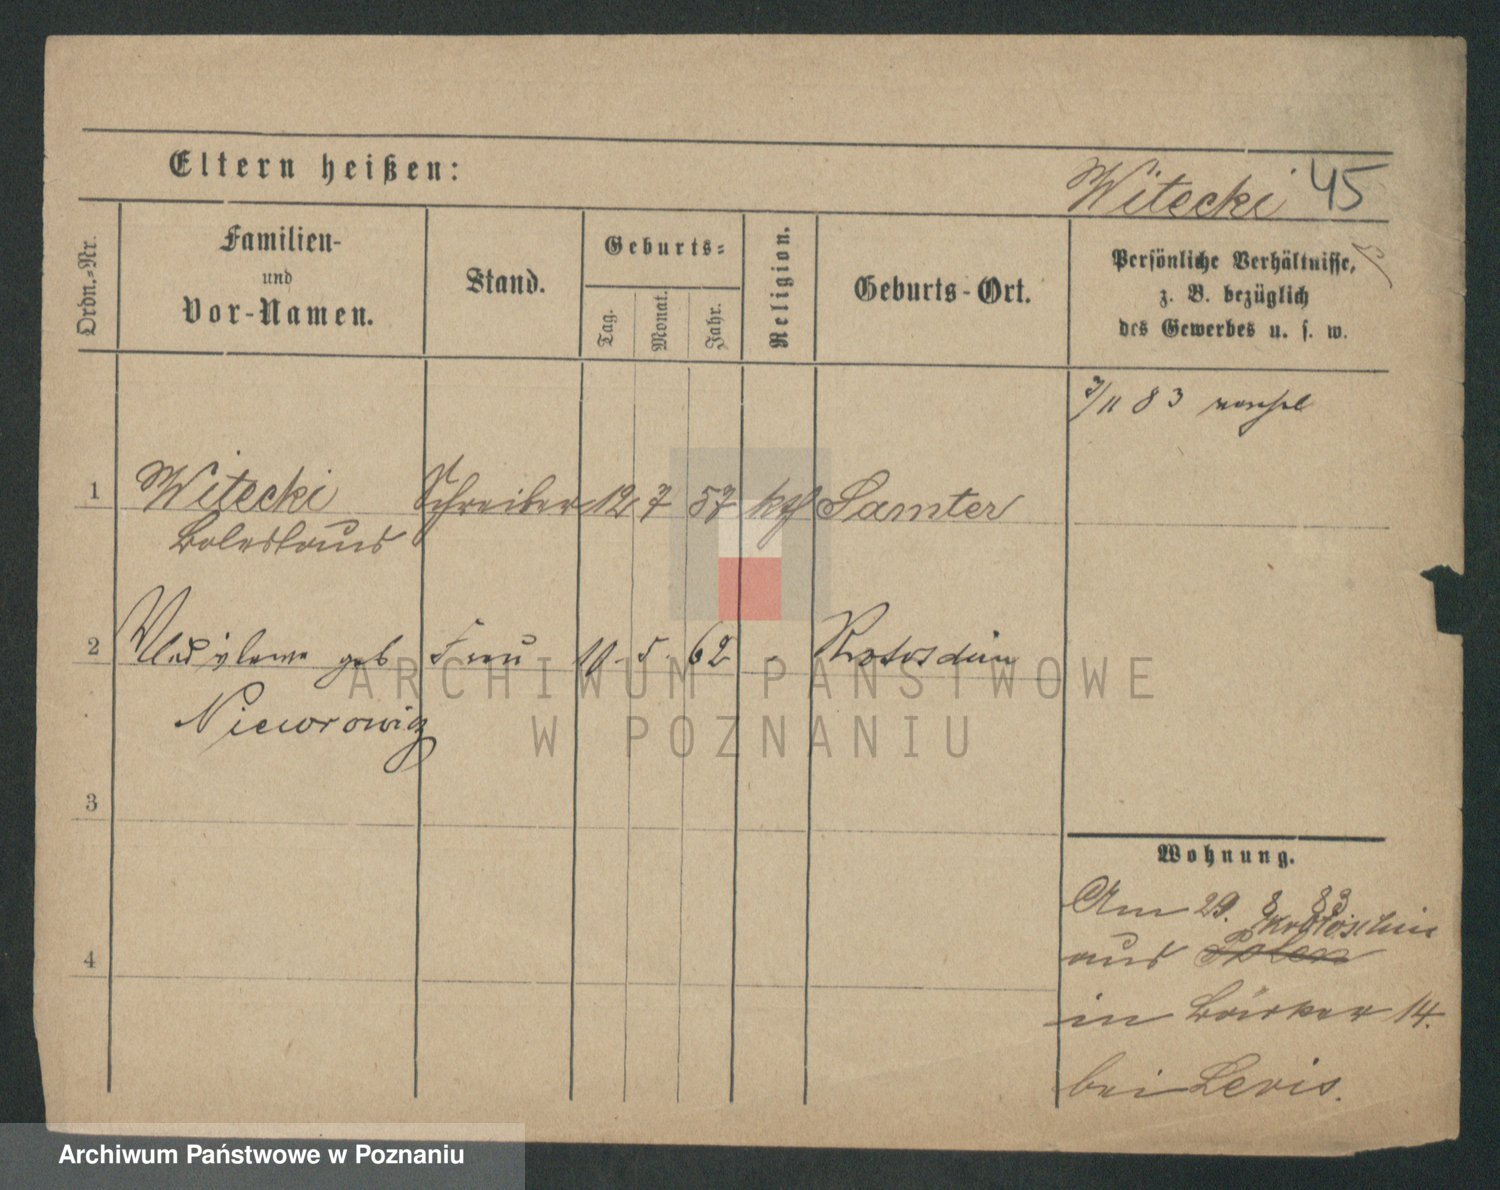 Eltern heißen:
Witecki 45
Ordn.-Nr.
Familien-
und
Vor-Namen.
Stand.
Geburts-
Tag.
Monat.
Jahr.
Religion.
Geburts-Ort.
Persönliche Verhältnisse,
z. B. bezüglich
des Gewerbes u. s. w.
7/11 83
1 Witecki Schreiber 12 7 57 kth Samter
Boleslaus
2 geb Frau 10 5 62 - Krotoschin
Nieworowicz
3
4
Wohnung.
Am 29. 8 83
Krotoschin
aus Polen
in Bäcker 14.
bei Levis.
ARCHIWUM PAŃSTWOWE
W POZNANIU
Archiwum Państwowe w Poznaniu